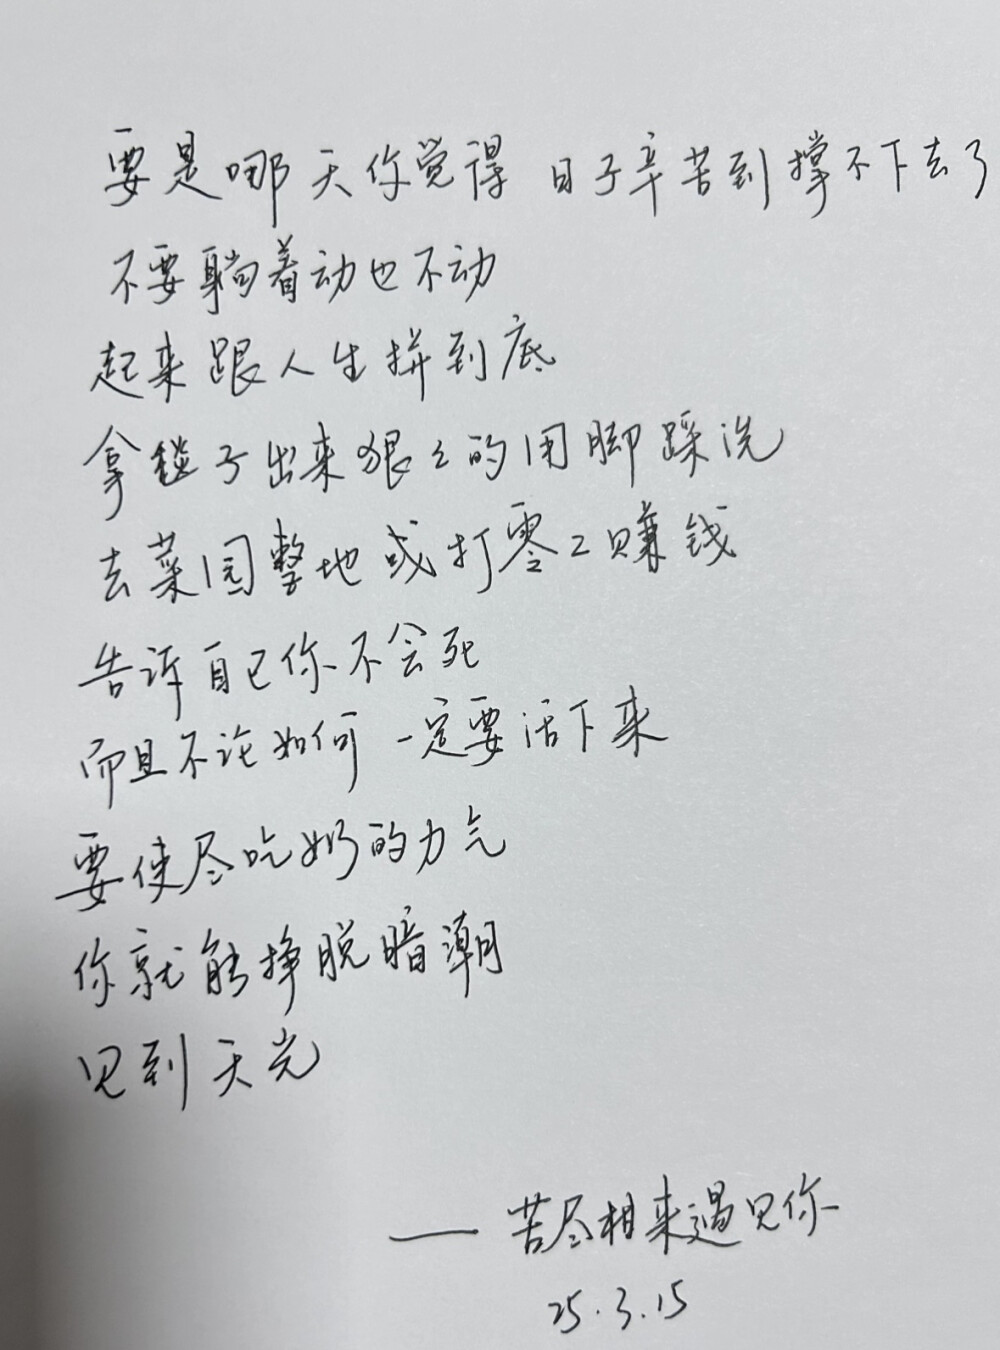 要是哪天你觉得 日子辛苦到撑不下去了
不要躺着动也不动
起来跟人生拼到底
拿毯子出来狠狠的用脚踩洗
去菜园整地或打零工赚钱
告诉自己你不会死
而且不论如何 一定要活下来
要使尽吃奶的力气
你就能挣脱暗潮
见到天光
—— 苦尽相来遇见你
25.3.15